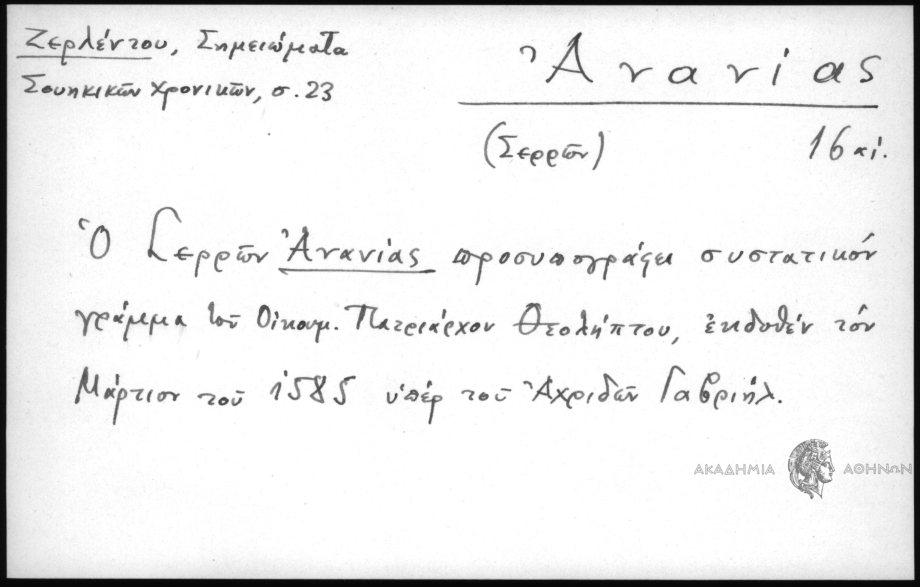 Ζερλέντου, Σημειώματα
Σουηκικῶν χρονικῶν, σ. 23
Ἀνανίας
(Σερρῶν) 16 αἰ.
Ὁ Σερρῶν Ἀνανίας προσυπογράφει συστατικόν
γράμμα τοῦ Οἰκουμ. Πατριάρχου Θεολήπτου, ἐκδοθέν τόν
Μάρτιον τοῦ 1585 ὑπέρ τοῦ Ἀχριδῶν Γαβριήλ.
ΑΚΑΔΗΜΙΑ ΑΘΗΝΩΝ